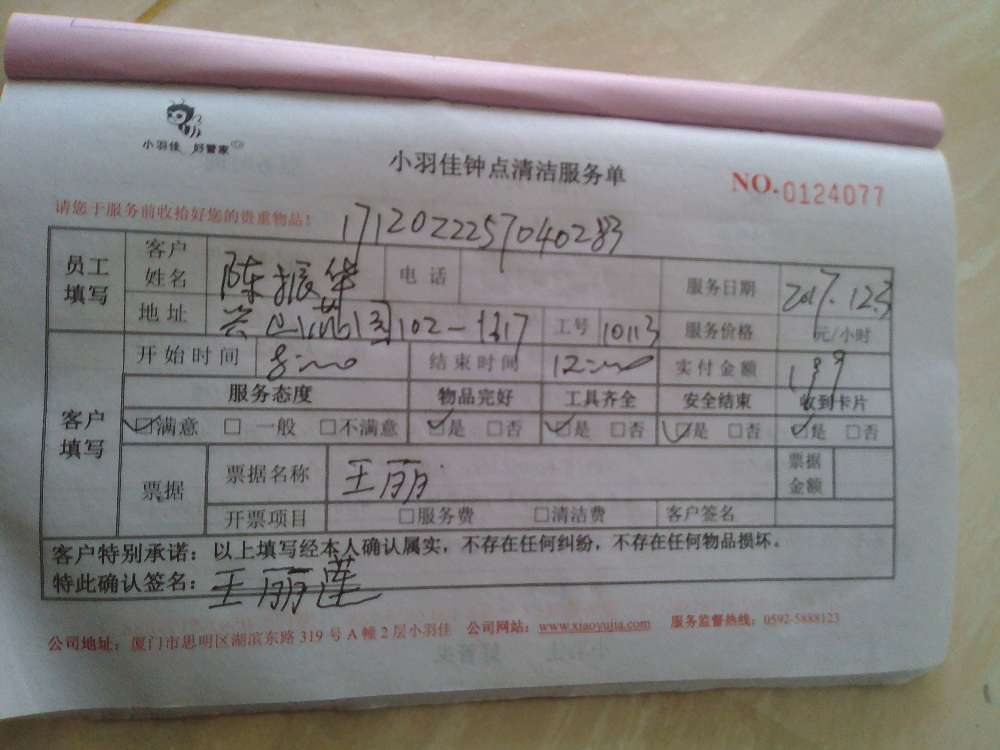 小羽佳 好管家
小羽佳钟点清洁服务单
NO.0124077
请您于服务前收拾好您的贵重物品!
1712022257040283
员工填写 客户姓名 陈振华 电话 服务日期 2017.12.3
地址 102- 工号 10113 服务价格 元/小时
开始时间 8:00 结束时间 12:00 实付金额 199
客户填写 服务态度 物品完好 工具齐全 安全结束 收到卡片
☑满意 □一般 □不满意 ☑是 □否 ☑是 □否 ☑是 □否 ☑是 □否
票据 票据名称 王丽 票据金额
开票项目 □服务费 □清洁费 客户签名
客户特别承诺:以上填写经本人确认属实,不存在任何纠纷,不存在任何物品损坏。
特此确认签名:王丽莲
公司地址:厦门市思明区湖滨东路 319 号 A 幢 2 层小羽佳 公司网站:www.xiaoyujia.com 服务监督热线:0592-5888123